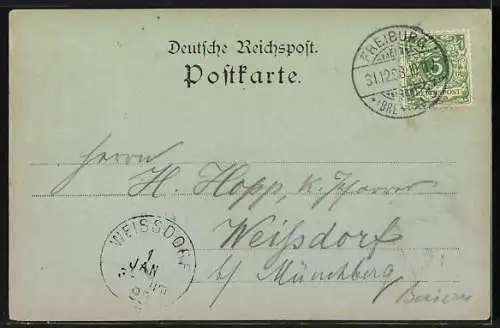 Deutsche Reichspost.
Postkarte.
FREIBURG
31.12.98
* (BREISGAU)
5
REICHSPOST
Herrn
H. Hopp, K. Pfarrer
Weißdorf
b/ Münchberg
Baiern
WEISSDORF
1
JAN